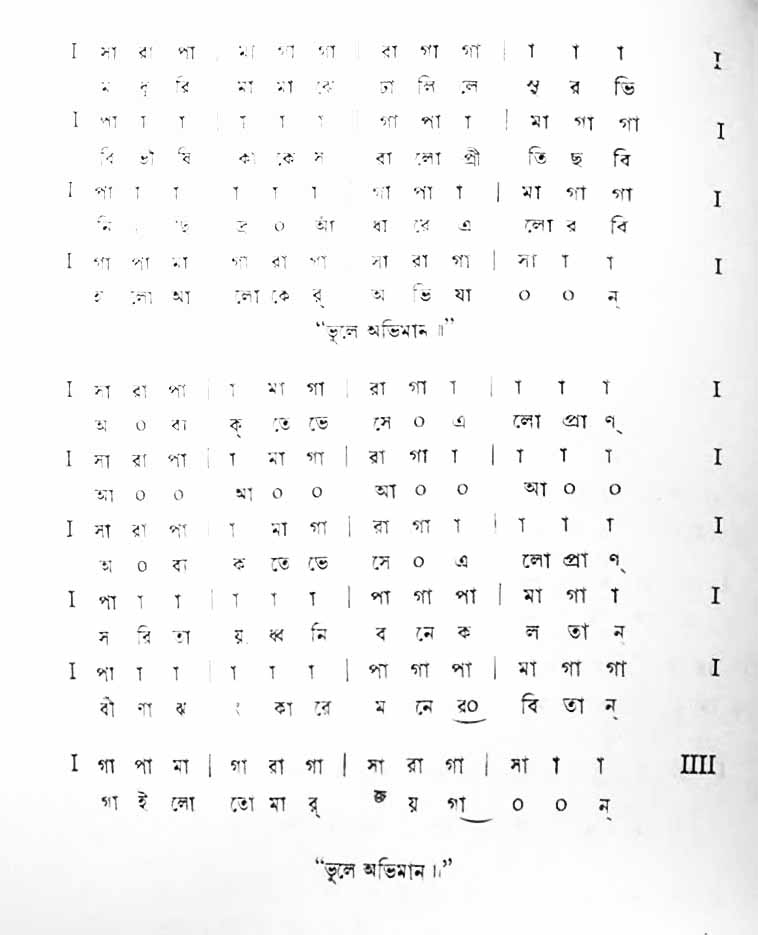 I সা রা পা | মা গা গা | রা গা গা | া া া I
ম দু রি মা মা ঝে ঢা লি লে সু র ভি
I পা া া | া া া | গা পা া | মা গা গা I
বি ভী ষি কা কে স রা লো প্রী তি ছ বি
I পা া া | া া া | গা পা া | মা গা গা I
নি ছি দ্র ০ আঁ ধা রে এ লো র বি
I গা পা মা | গা রা গা | সা রা গা | সা া া I
হ লো আ লো কে র্ অ ভি যা ০ ০ ন্
“ভুলে অভিমান ॥”
I সা রা পা | া মা গা | রা গা া | া া া I
অ ০ ব্য ক্ তে ভে সে ০ এ লো প্রা ণ্
I সা রা পা | া মা গা | রা গা া | া া া I
আ ০ ০ আ ০ ০ আ ০ ০ আ ০ ০
I সা রা পা | া মা গা | রা গা া | া া া I
অ ০ ব্য ক তে ভে সে ০ এ লো প্রা ণ্
I পা া া | া া া | পা গা পা | মা গা া I
স রি তা য় ধ্ব নি ব নে ক ল তা ন্
I পা া া | া া া | পা গা পা | মা গা গা I
বী ণা ঝ ং কা রে ম নে র০ বি তা ন্
I গা পা মা | গা রা গা | সা রা গা | সা া া IIII
গা ই লো তো মা র্ জ য় গা ০ ০ ন্
“ভুলে অভিমান ॥”